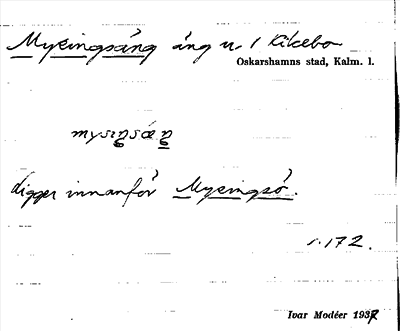 Mysingsäng äng u. 1 Kikebo
Oskarshamns stad, Kalm. l.
ligger innanför Mysingsö.
1.172.
Ivar Modéer 1937